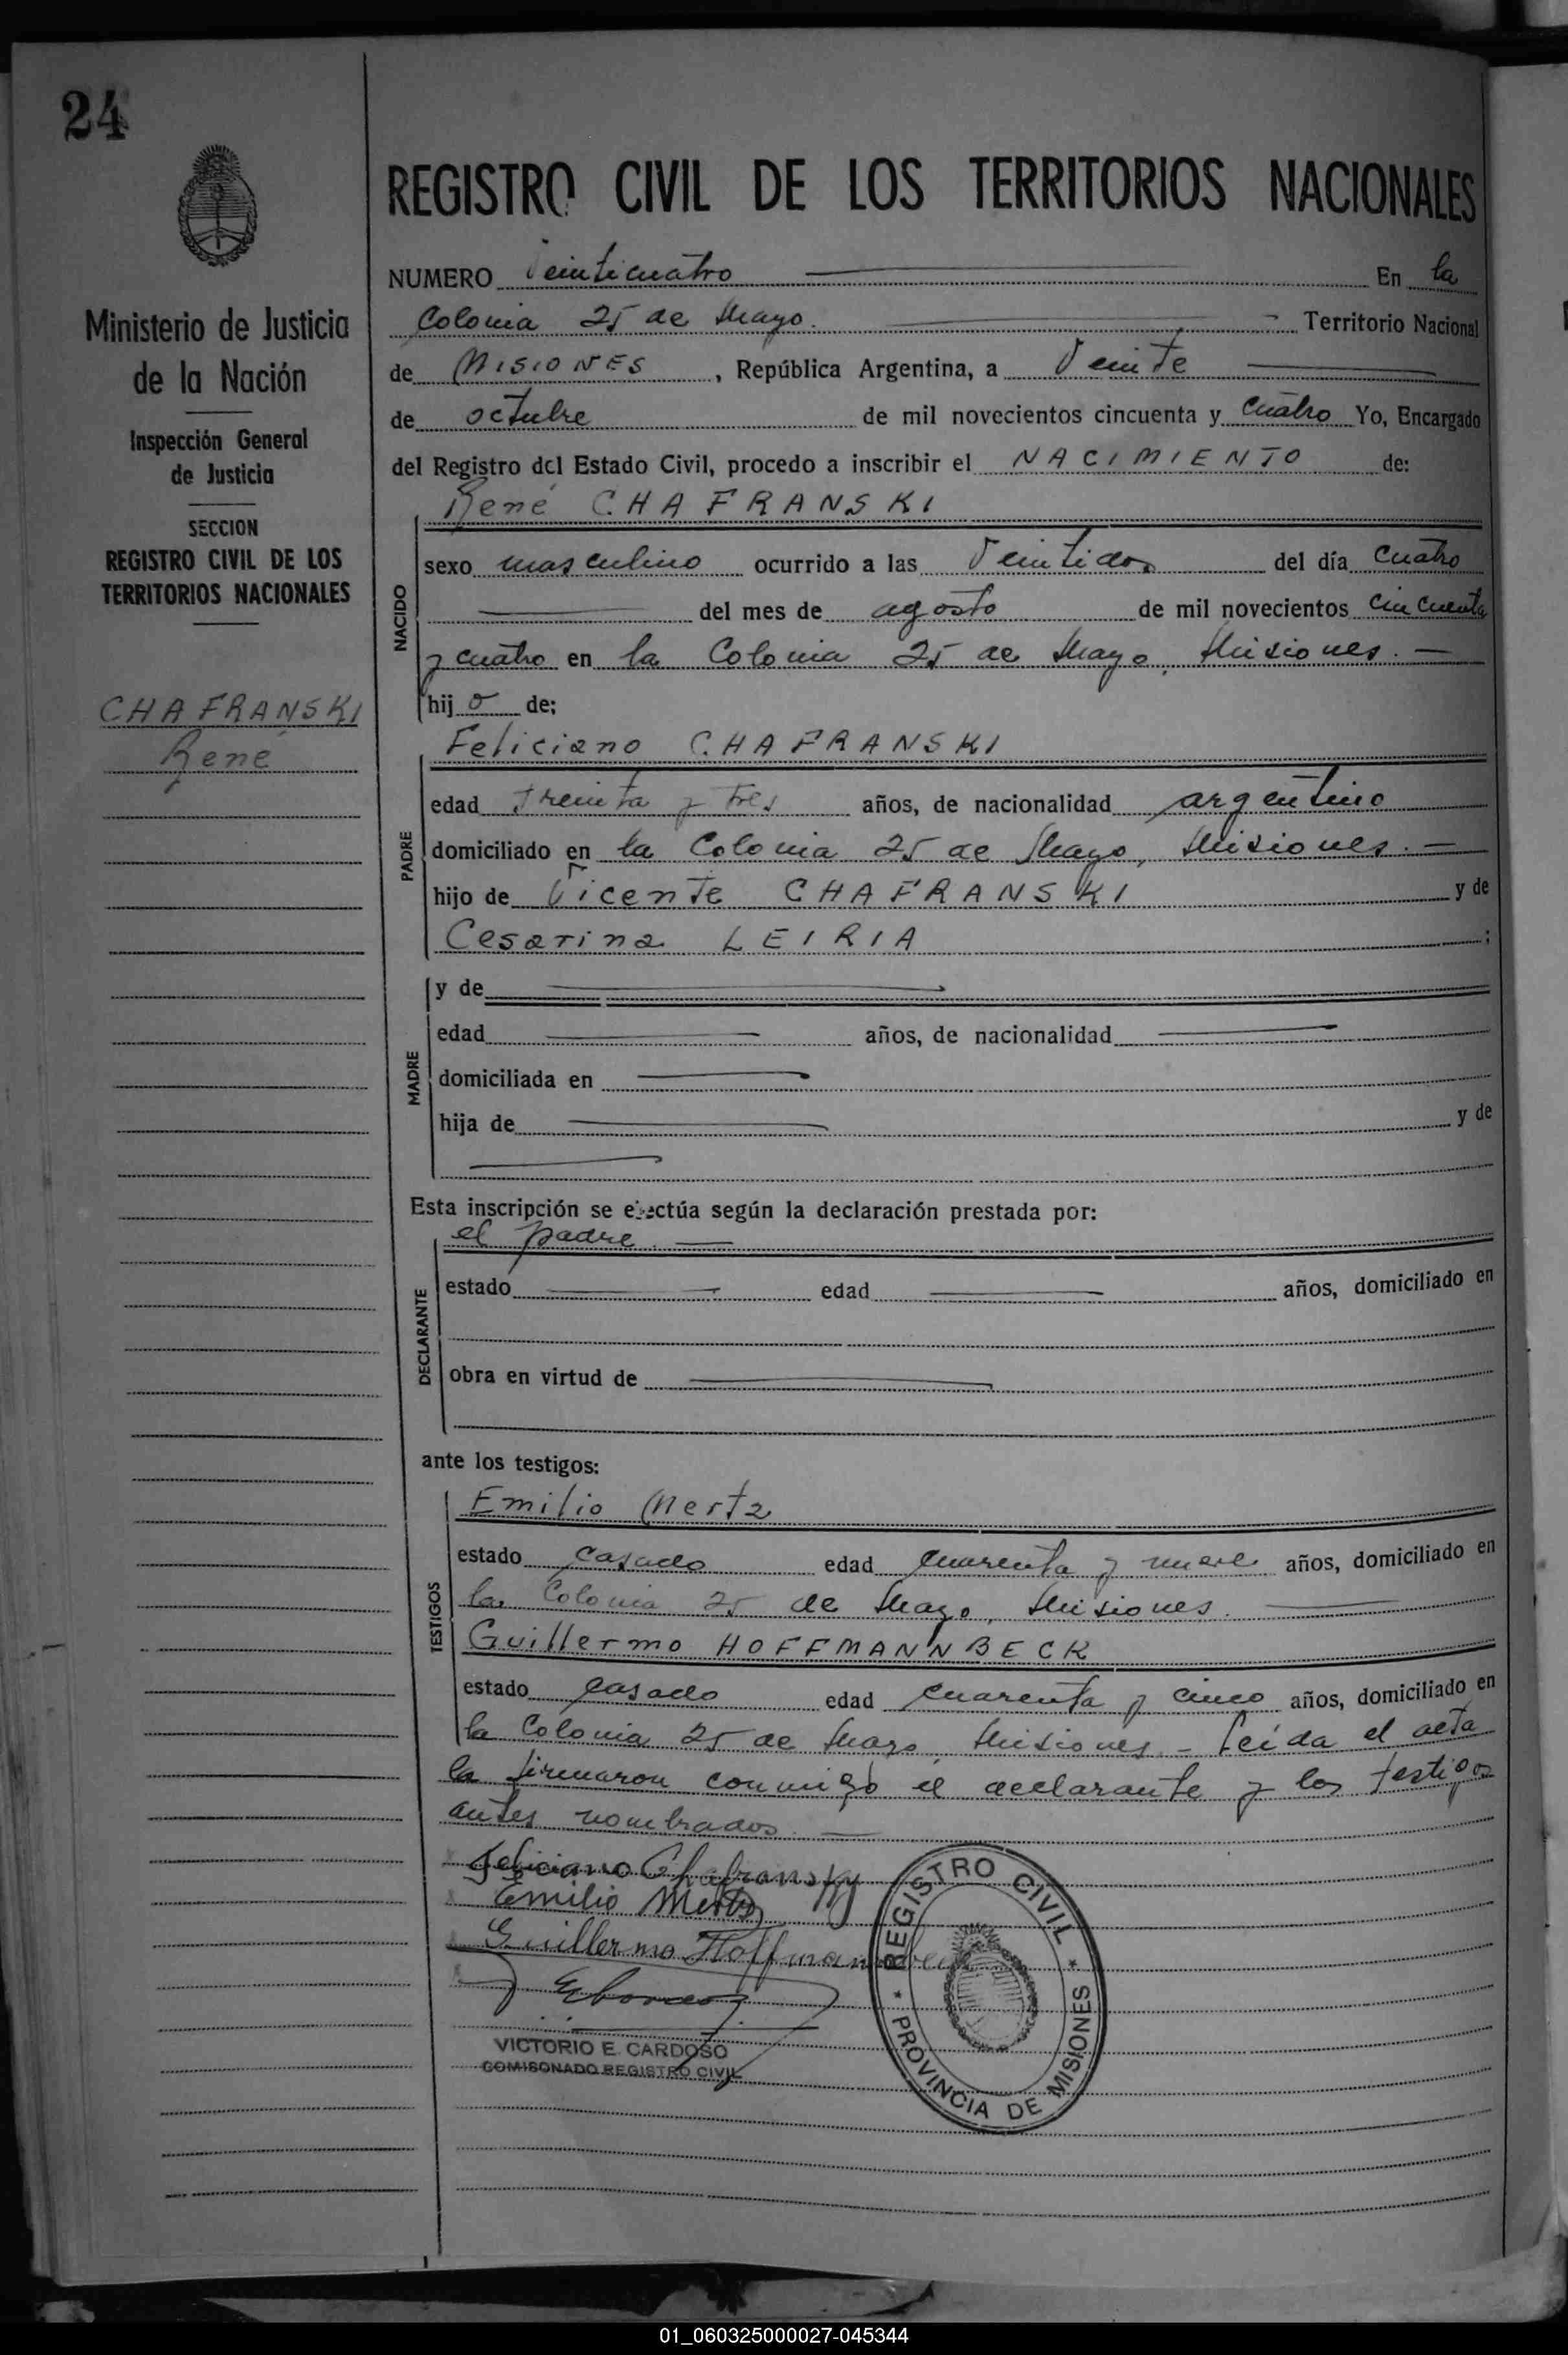 24
REGISTRO CIVIL DE LOS TERRITORIOS NACIONALES
Ministerio de Justicia
de la Nación
Inspección General
de Justicia
SECCION
REGISTRO CIVIL DE LOS
TERRITORIOS NACIONALES
CHAFRANSKI
René
NUMERO Veinticuatro En la
Colonia 25 de Mayo. Territorio Nacional
de MISIONES, República Argentina, a Veinte
de octubre de mil novecientos cincuenta y cuatro Yo, Encargado
del Registro del Estado Civil, procedo a inscribir el NACIMIENTO de:
René CHAFRANSKI
NACIDO
sexo masculino ocurrido a las Veintidos del día cuatro
del mes de agosto de mil novecientos cincuenta
y cuatro en la Colonia 25 de Mayo, Misiones. —
hijo de:
Feliciano CHAFRANSKI
PADRE
edad treinta y tres años, de nacionalidad argentino
domiciliado en la Colonia 25 de Mayo, Misiones. —
hijo de Vicente CHAFRANSKI y de
Cesarina LEIRIA ;
MADRE
y de
edad años, de nacionalidad
domiciliada en
hija de y de
Esta inscripción se efectúa según la declaración prestada por:
el padre. —
DECLARANTE
estado edad años, domiciliado en
obra en virtud de
ante los testigos:
TESTIGOS
Emilio Mertz
estado casado edad cuarenta y nueve años, domiciliado en
la Colonia 25 de Mayo, Misiones.
Guillermo HOFFMANNBECK
estado casado edad cuarenta y cinco años, domiciliado en
la Colonia 25 de Mayo, Misiones. - Leída el acta
la firmaron conmigo el declarante y los testigos
antes nombrados. —
Feliciano Chafransky
Emilio Mertz
Guillermo Hoffmannbeck
VICTORIO E. CARDOSO
COMISONADO REGISTRO CIVIL
* REGISTRO CIVIL * PROVINCIA DE MISIONES
01_060325000027-045344